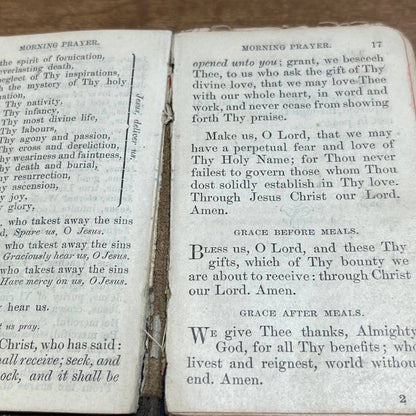 MORNING PRAYER.
the spirit of fornication,
everlasting death,
neglect of Thy inspirations,
the mystery of Thy holy
nation,
Thy nativity,
Thy infancy,
Thy most divine life,
Thy labours,
Thy agony and passion,
Thy cross and dereliction,
Thy weariness and faintness,
Thy death and burial,
Thy resurrection,
Thy ascension,
Thy joy,
Thy glory,
Jesus, deliver us.
who takest away the sins
Spare us, O Jesus.
who takest away the sins
Graciously hear us, O Jesus.
who takest away the sins
Have mercy on us, O Jesus.
hear us.
us pray.
Christ, who has said:
shall receive; seek, and
and it shall be
MORNING PRAYER. 17
opened unto you; grant, we beseech
Thee, to us who ask the gift of Thy
divine love, that we may love Thee
with our whole heart, in word and
work, and never cease from showing
forth Thy praise.
Make us, O Lord, that we may
have a perpetual fear and love of
Thy Holy Name; for Thou never
failest to govern those whom Thou
dost solidly establish in Thy love.
Through Jesus Christ our Lord.
Amen.
GRACE BEFORE MEALS.
BLESS us, O Lord, and these Thy
gifts, which of Thy bounty we
are about to receive: through Christ
our Lord. Amen.
GRACE AFTER MEALS.
WE give Thee thanks, Almighty
God, for all Thy benefits; who
livest and reignest, world without
end. Amen.
2